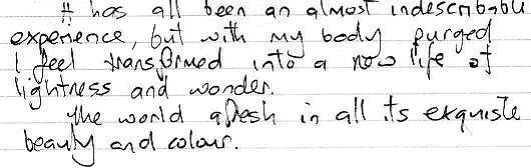 It has all been an almost indescribable
experience, but with my body purged
I feel transformed into a new life of
lightness and wonder.
The world afresh in all its exquiste
beauty and colour.